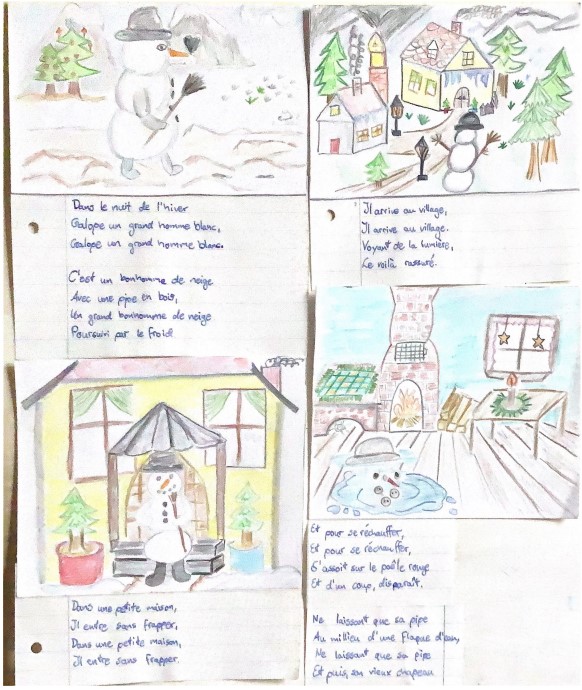 Dans le nuit de l'hiver
Galope un grand homme blanc,
Galope un grand homme blanc.
C'est un bonhomme de neige
Avec une pipe en bois,
Un grand bonhomme de neige
Poursuivi par le froid
Il arrive au village,
Il arrive au village.
Voyant de la lumière,
Le voilà rassuré.
Dans une petite maison,
Il entre sans frapper,
Dans une petite maison,
Il entre sans frapper.
Et pour se réchauffer,
Et pour se réchauffer,
S'assoit sur le poêle rouge
Et d'un coup, disparaît.
Ne laissant que sa pipe
Au milieu d'une Flaque d'eau,
Ne laissant que sa pipe
Et puis, son vieux chapeau